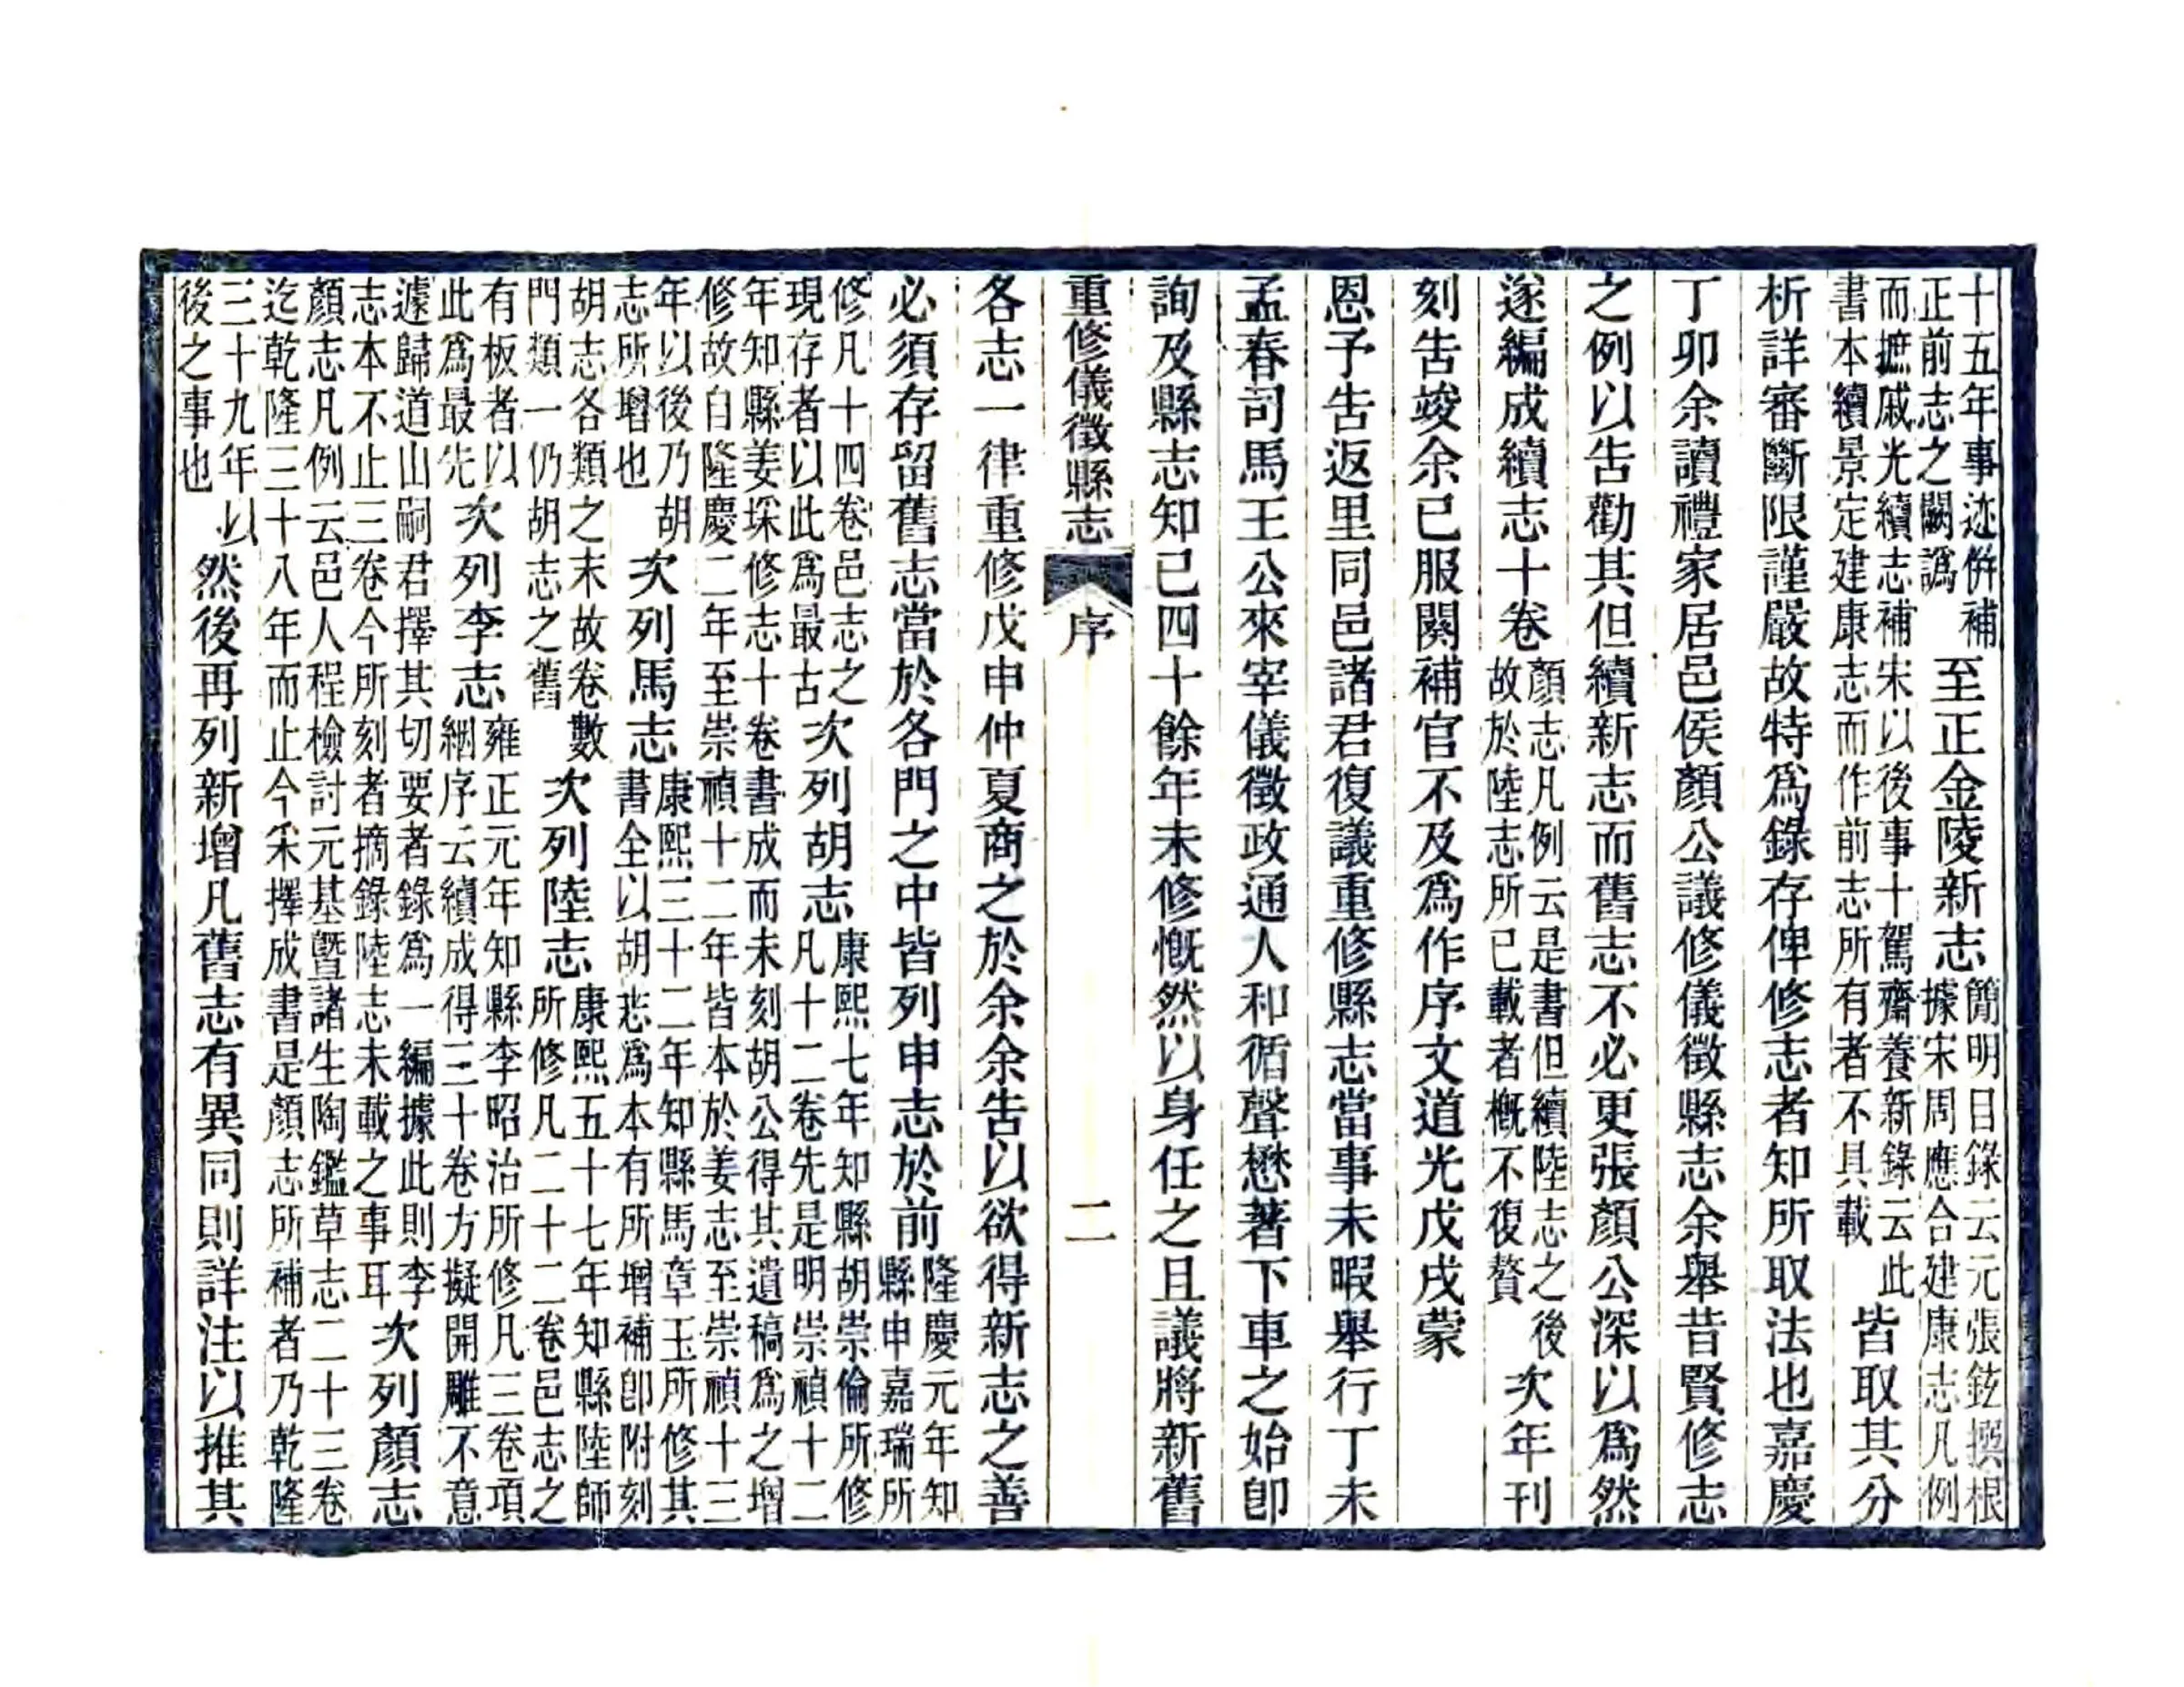 十五年事迹併補正前志之闕譌至正金陵新志簡明目錄云元張鉉撰根據宋周應合建康志凡例
而摭戚光續志補宋以後事十駕齋養新錄云此書本續景定建康志而作前志所有者不具載皆取其分
析詳審斷限謹嚴故特爲錄存俾修志者知所取法也嘉慶
丁卯余讀禮家居邑侯顏公議修儀徵縣志余舉昔賢修志
之例以告勸其但續新志而舊志不必更張顏公深以爲然
遂編成續志十卷顏志凡例云是書但續陸志之後故於陸志所已載者槪不復贅次年刊
刻告竣余已服闋補官不及爲作序文道光戊戌蒙
恩予告返里同邑諸君復議重修縣志當事未暇舉行丁未
孟春司馬王公來宰儀徵政通人和循聲懋著下車之始卽
詢及縣志知已四十餘年未修慨然以身任之且議將新舊
重修儀徵縣志 序 二
各志一律重修戊申仲夏商之於余余告以欲得新志之善
必須存留舊志當於各門之中皆列申志於前隆慶元年知縣申嘉瑞所
修凡十四卷邑志之現存者以此爲最古次列胡志康熙七年知縣胡崇倫所修凡十二卷先是明崇禎十二
年知縣姜埰修志十卷書成而未刻胡公得其遺稿爲之增修故自隆慶二年至崇禎十二年皆本於姜志至崇禎十三
年以後乃胡志所增也次列馬志康熙三十二年知縣馬章玉所修其書全以胡志爲本有所增補卽附刻
胡志各類之末故卷數門類一仍胡志之舊次列陸志康熙五十七年知縣陸師所修凡二十二卷邑志之
有板者以此爲最先次列李志雍正元年知縣李昭治所修凡三卷項絪序云續成得三十卷方擬開雕不意
遽歸道山嗣君擇其切要者錄爲一編據此則李志本不止三卷今所刻者摘錄陸志未載之事耳次列顏志
顏志凡例云邑人程檢討元基暨諸生陶鑑草志二十三卷迄乾隆三十八年而止今釆擇成書是顏志所補者乃乾隆
三十九年以後之事也然後再列新增凡舊志有異同則詳注以推其